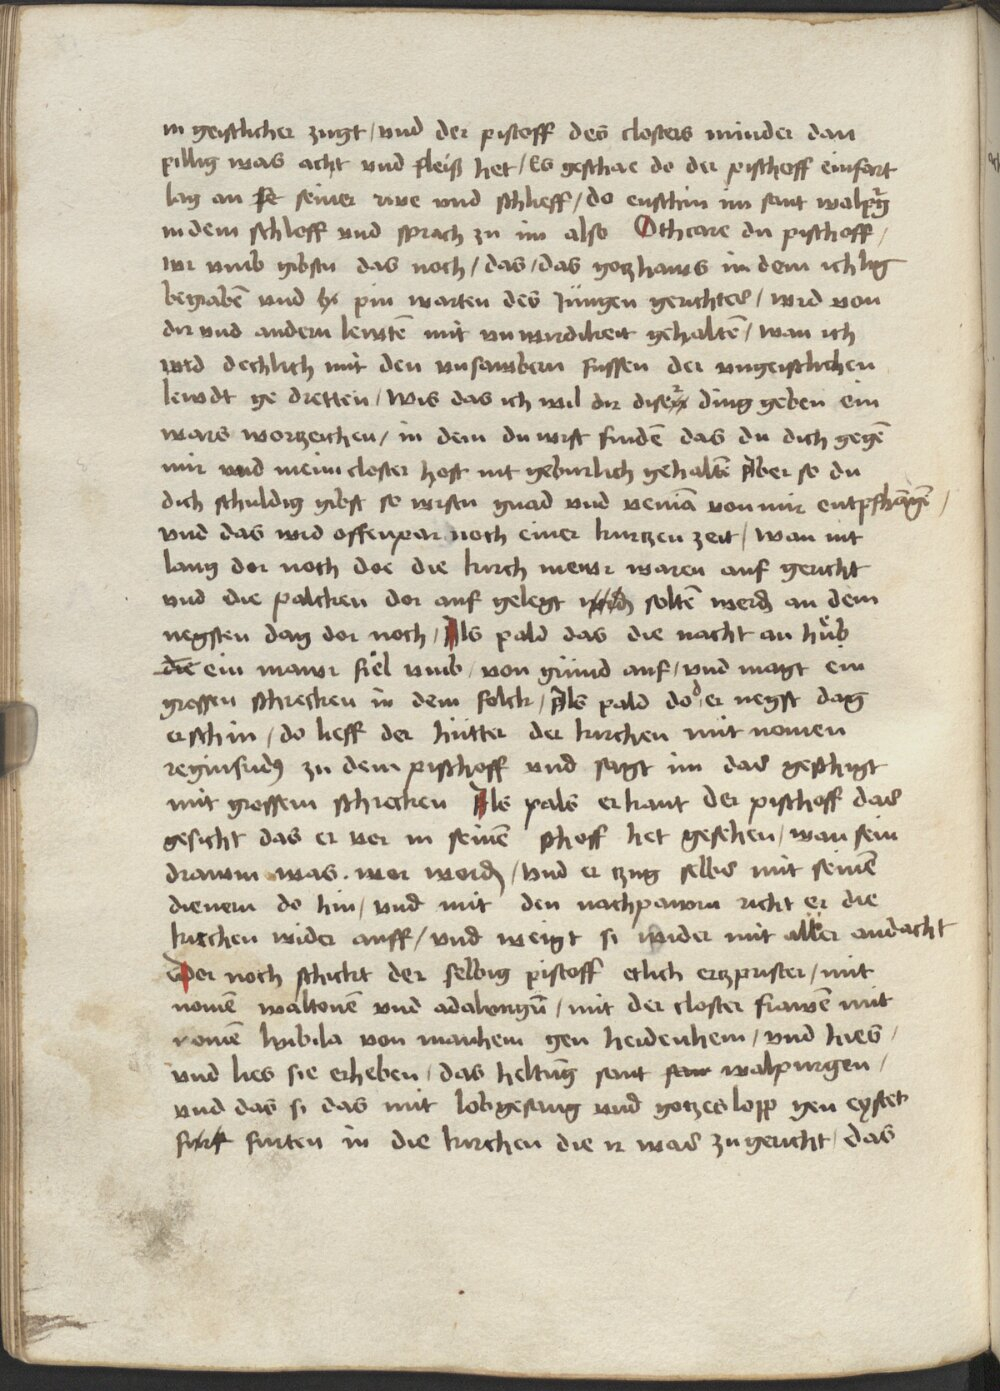 in geistlicher zugt / vnd der pistoff des closters minder dan
pillig was acht vnd fleiß het / Es geschae do der pischoff einfart
lag an seiner rwe vnd schlieff / do erschin im sant walpurg
in dem schloff vnd sprach zu im also Othcare du pischoff /
wr vmb gibstu das noch / das / das gotzhaws in dem ich lig
begrabē vnd pin warten des Jüngen gerichtes / wrd von
dir vnd andern lewtē mit vnwirdikeit gehaltē / wan ich
wrd dechlich mit den vnsawbern fussen der vngeistlichen
lewdt ge dretten / wis das ich wil dir diser ding geben ein
wars worzeichen / in dem du wrst findē das du dich gegē
mir vnd meim closter host nit geburlich gehaltē Aber so du
dich schuldig gibst so wrstu gnad vnd veniā von mir entpfhāgē /
vnd das wrd offenpar noch einer kurtzen zeit / wan nit
lang dor noch doe die kirch mewr waren auf gericht
vnd die palcken dor auf gelegt soltē werdē an dem
negsten dag dor noch / Als pald das die nacht an hůb
die ein mawr fiel vmb / von grund auf / vnd magt ein
grossen schrecken in dem folck / Als pald do der negst dag
erschin / do lieff der hütter der kirchen mit nomen
reginfridus zu dem pischoff vnd sagt im das geschigt
mit grossem schrecken Als pals erkant der pischoff das
gesicht das er vor in seinē schoff het gesehen / wan sein
drawm was wor wordē / vnd er tzug selbs mit seinē
dienern do hin / vnd mit den nachpawrn richt er die
kirchen wider auff / vnd weigt si wider mit aller andacht
Der noch schickt der selbig pistoff etlich ertzprister / mit
nomē waltonē vnd adalungū / mit der closter frawē mit
nomē liubila von manhem gen heidenhem / vnd hies /
vnd lies sie erheben / das heltūg sant walpurgen /
vnd das si das mit lobgesang vnd gotzeslopp gen eystet
furten in die kirchen die ir was zu gericht / das